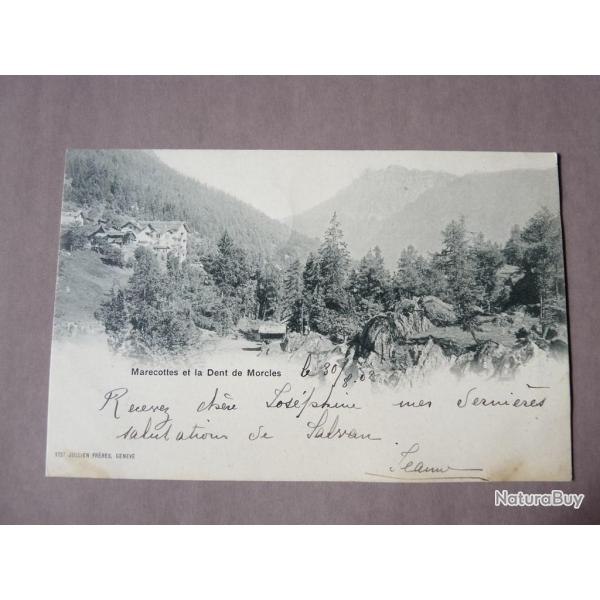 Marecottes et la Dent de Morcles le 30/8.02
Recevez chère Joséphine mes dernières
salutations de Salvan
Jeanne
1757 JULLIEN FRÈRES, GENÈVE
NaturaBuy